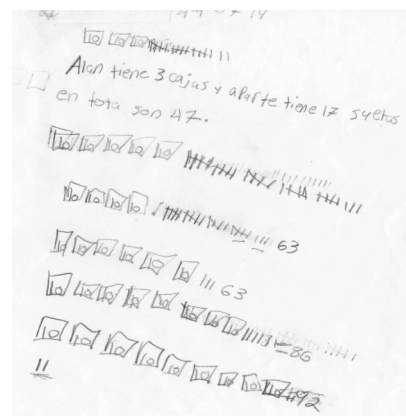 10 10 10 11
Alan tiene 3 cajas y aparte tiene 17 sueltos
en tota son 47.
10 10 10 10 10
10 10 10 10 63
10 10 10 10 10 10 111 63
10 10 10 10 10 10 10 10 = 86
10 10 10 10 10 10 10 10 10 92
11